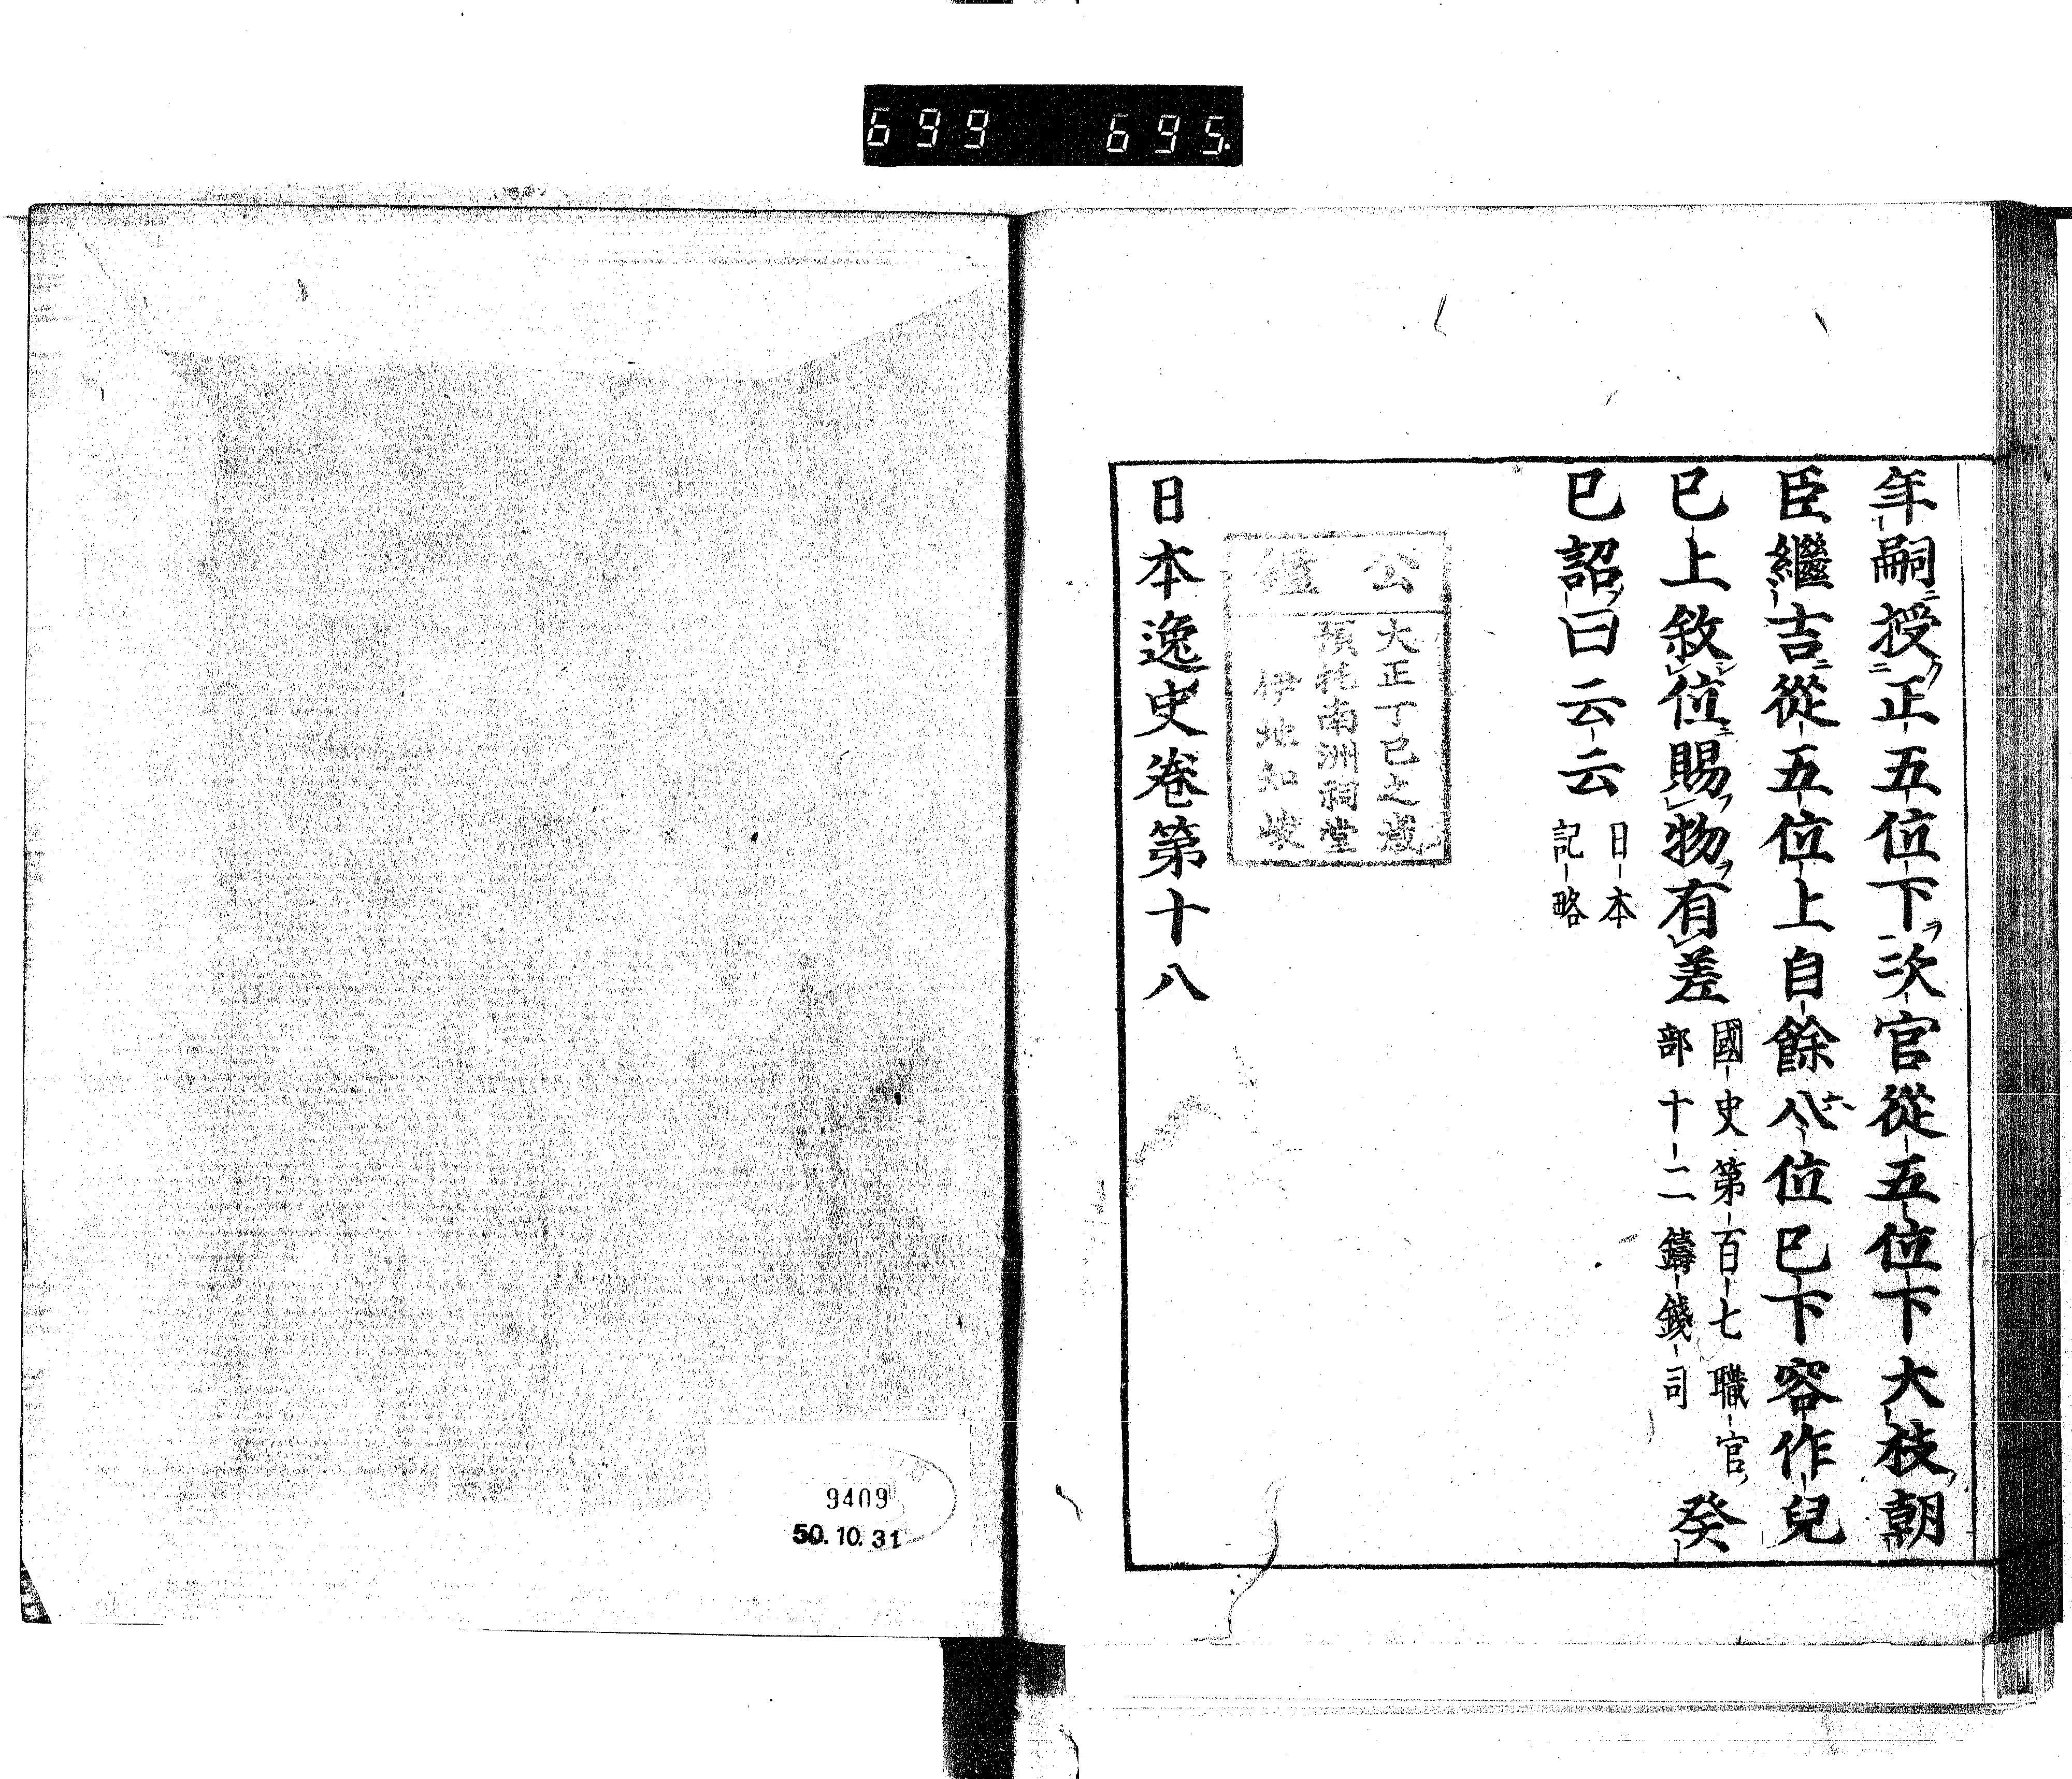 699 695.
年嗣授正五位下次官從五位下大枝朝
臣繼吉從五位上自餘八位已下容作兒
已上敘位賜物有差
國史第百七職官
部十二鑄錢司
癸
巳詔曰云云
日本
記略
公
大正丁巳之歲
預托南洲祠堂
伊地知峻
日本逸史卷第十八
9409
50.10.31